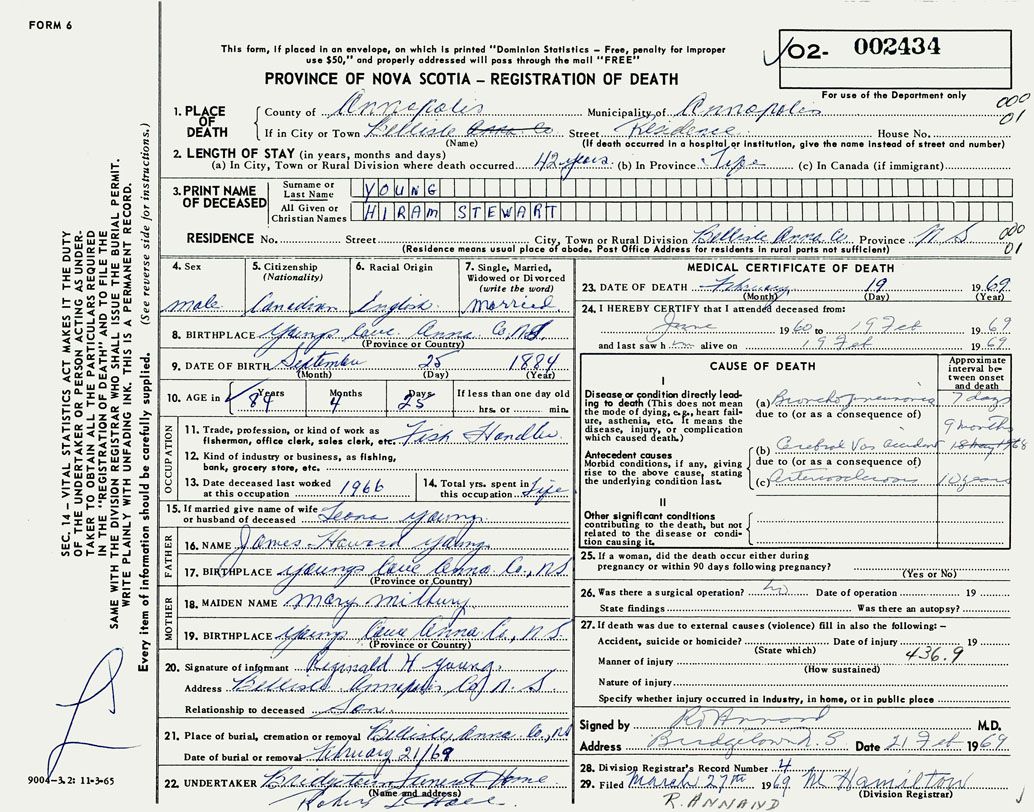 FORM 6
This form, if placed in an envelope, on which is printed "Dominion Statistics – Free, penalty for improper
use $50," and properly addressed will pass through the mail "FREE"
PROVINCE OF NOVA SCOTIA – REGISTRATION OF DEATH
02- 002434
For use of the Department only
000
01
1. PLACE OF DEATH
County of Annapolis Municipality of Annapolis
If in City or Town Bellisle Anna Co Street Residence House No.
(Name) (If death occurred in a hospital or institution, give the name instead of street and number)
2. LENGTH OF STAY (in years, months and days)
(a) In City, Town or Rural Division where death occurred 42 years (b) In Province Life (c) In Canada (if immigrant)
3. PRINT NAME OF DECEASED
Surname or Last Name YOUNG
All Given or Christian Names HIRAM STEWART
RESIDENCE No. Street City, Town or Rural Division Bellisle Anna Co. Province N S
(Residence means usual place of abode. Post Office Address for residents in rural parts not sufficient)
000
01
4. Sex
male
5. Citizenship
(Nationality)
Canadian
6. Racial Origin
English
7. Single, Married,
Widowed or Divorced
(write the word)
Married
8. BIRTHPLACE Youngs Cove Anna Co, NS
(Province or Country)
9. DATE OF BIRTH September 25 1884
(Month) (Day) (Year)
10. AGE in Years 84 Months 4 Days 25 If less than one day old
hrs. or min.
OCCUPATION
11. Trade, profession, or kind of work as
fisherman, office clerk, sales clerk, etc. Fish Handler
12. Kind of industry or business, as fishing,
bank, grocery store, etc.
13. Date deceased last worked
at this occupation 1966
14. Total yrs. spent in
this occupation Life
15. If married give name of wife
or husband of deceased Leona Young
FATHER
16. NAME James Howard Young
17. BIRTHPLACE Youngs Cove Anna Co., NS
(Province or Country)
MOTHER
18. MAIDEN NAME Mary Milbury
19. BIRTHPLACE Youngs Cove Anna Co., N S
(Province or Country)
20. Signature of informant Reginald H Young
Address Bellisle Annapolis Co N. S
Relationship to deceased Son
21. Place of burial, cremation or removal Bellisle Anna Co., NS
Date of burial or removal February 21/69
22. UNDERTAKER Bridgetown Funeral Home
(Name and address)
MEDICAL CERTIFICATE OF DEATH
23. DATE OF DEATH February 19 1969
(Month) (Day) (Year)
24. I HEREBY CERTIFY that I attended deceased from:
June 1960 to 19 Feb 1969
and last saw him alive on 19 Feb 1969
CAUSE OF DEATH
Approximate interval between onset and death
I
Disease or condition directly leading to death (This does not mean the mode of dying, e.g., heart failure, asthenia, etc. It means the disease, injury, or complication which caused death.)
(a) Bronchopneumonia 7 days
due to (or as a consequence of)
9 months
Antecedent causes
Morbid conditions, if any, giving rise to the above cause, stating the underlying condition last.
(b) Cerebral Vas accident 18 May 1968
due to (or as a consequence of)
(c) Arteriosclerosis 10 years
II
Other significant conditions
contributing to the death, but not related to the disease or condition causing it.
25. If a woman, did the death occur either during
pregnancy or within 90 days following pregnancy?
(Yes or No)
26. Was there a surgical operation? no Date of operation 19
State findings Was there an autopsy?
27. If death was due to external causes (violence) fill in also the following:–
Accident, suicide or homicide? Date of injury 19
(State which)
436.9
Manner of injury
(How sustained)
Nature of injury
Specify whether injury occurred in industry, in home, or in public place
Signed by R Annand M.D.
Address Bridgetown N.S Date 21 Feb 1969
28. Division Registrar's Record Number 4
29. Filed March 27th 1969 M Hamilton
(Division Registrar)
R. ANNAND
SEC. 14 – VITAL STATISTICS ACT MAKES IT THE DUTY
OF THE UNDERTAKER OR PERSON ACTING AS UNDER-
TAKER TO OBTAIN ALL THE PARTICULARS REQUIRED
IN THE "REGISTRATION OF DEATH" AND TO FILE THE
SAME WITH THE DIVISION REGISTRAR WHO SHALL ISSUE THE BURIAL PERMIT.
WRITE PLAINLY WITH UNFADING INK. THIS IS A PERMANENT RECORD.
Every item of information should be carefully supplied. (See reverse side for instructions.)
9004-3.2: 11-3-65